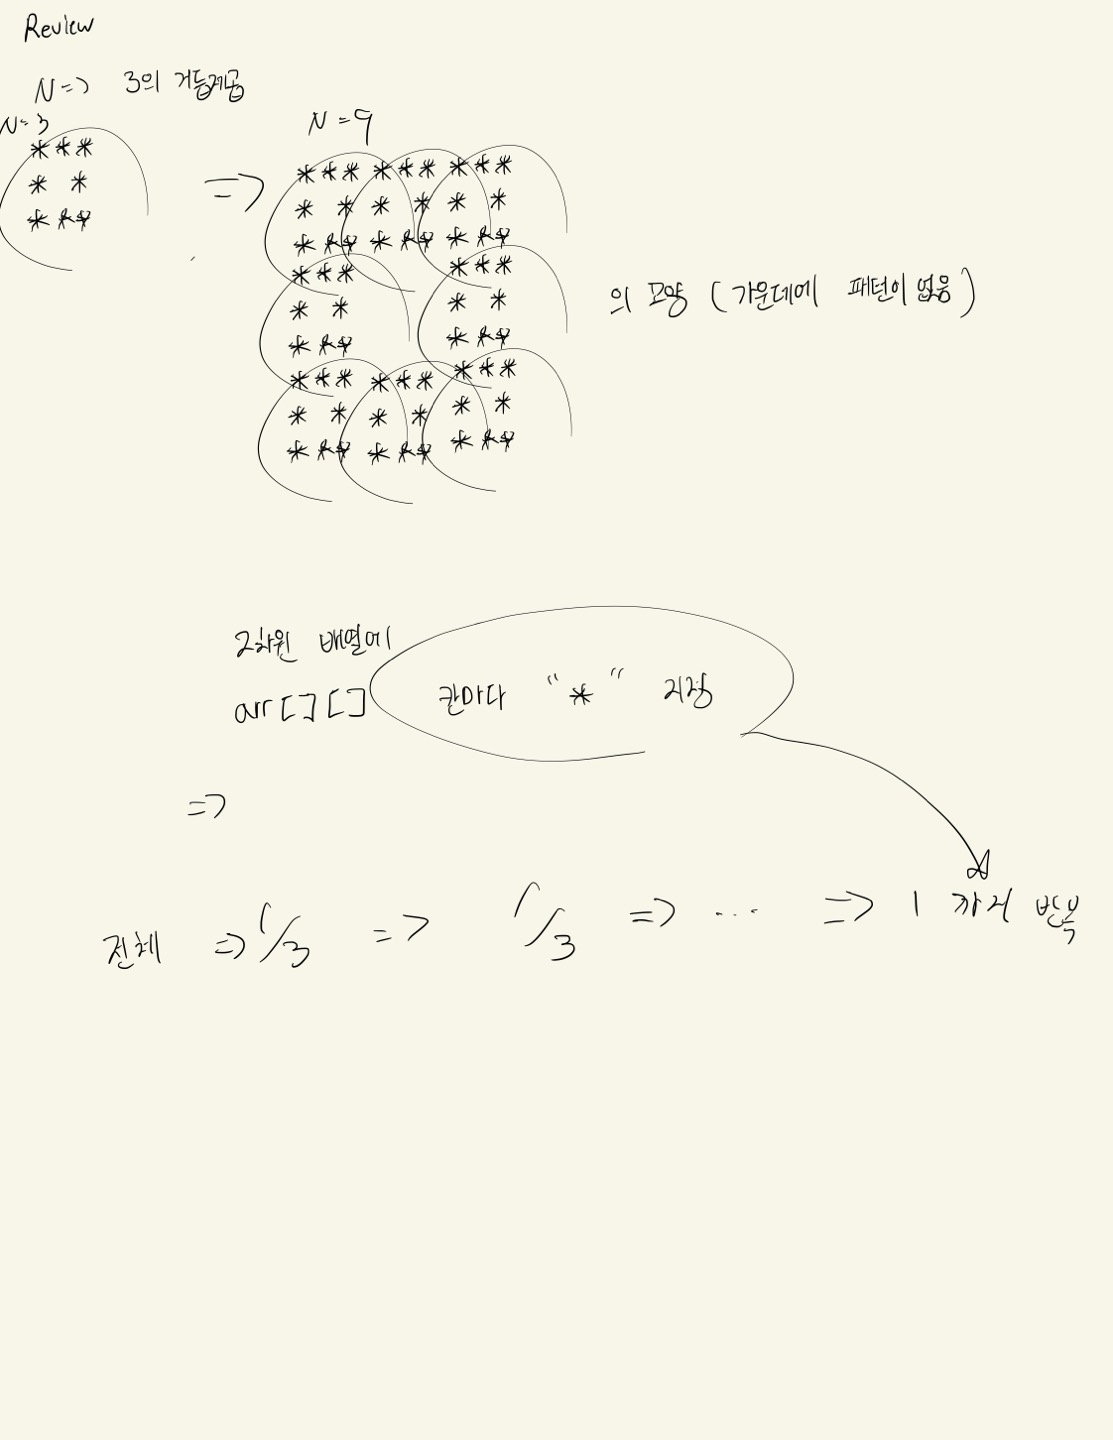 Review
N => 3의 거듭제곱
N=3
***
* *
***
=>
N=9
*** *** ***
* * * * * *
*** *** ***
*** ***
* * * *
*** ***
*** *** ***
* * * * * *
*** *** ***
의 모양 (가운데에 패턴이 없음)
2차원 배열에
arr[][] 칸마다 "*" 저장
=>
전체 => 1/3 => 1/3 => ... => 1 까지 반복